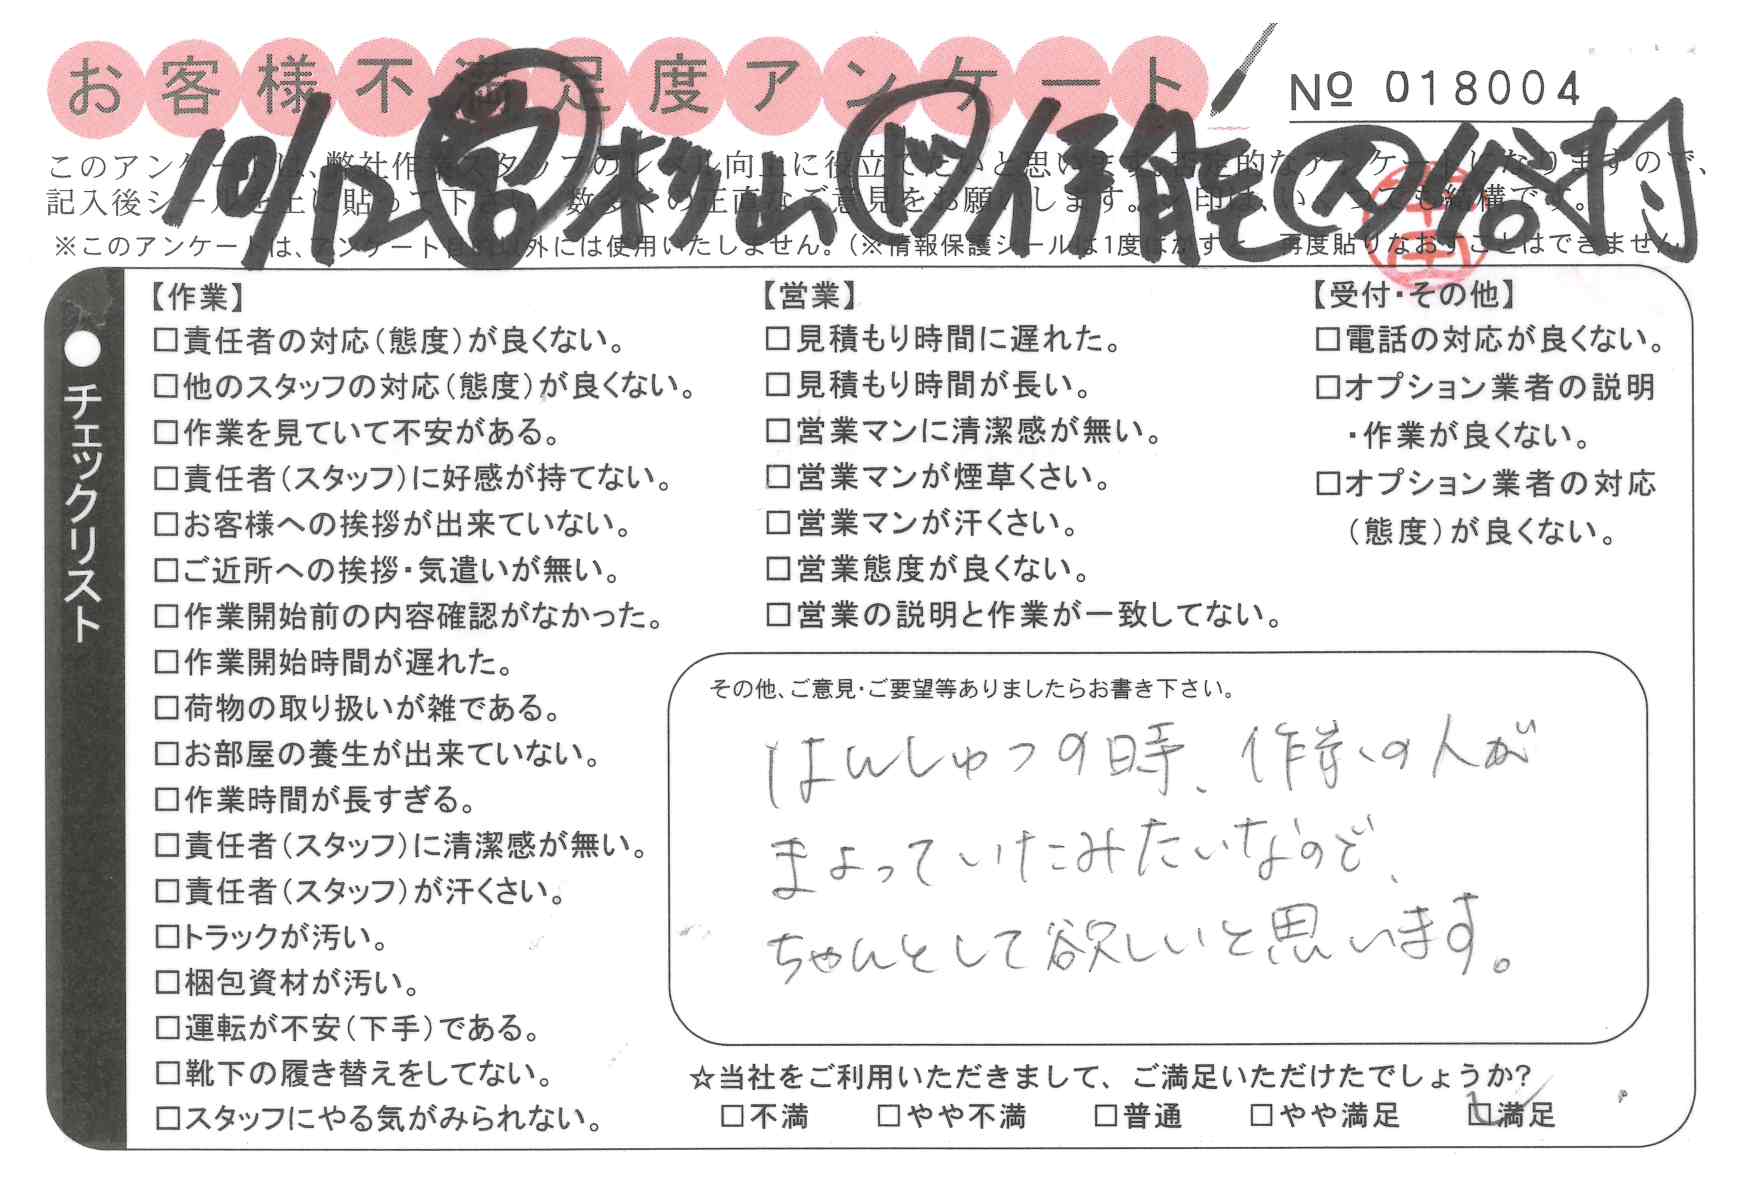 お客様不満足度アンケート
№ 018004
10/12 営 杉山 ド 伊能 ス 谷村
このアンケートは、弊社作業スタッフのレベル向上に役立てたいと思います。否定的なアンケートになりますので、
記入後シールを上に貼って下さい。数多くの正直なご意見をお願いします。レ印は、いくつでも結構です。
※このアンケートは、アンケート目的以外には使用いたしません。（※情報保護シールは1度はがすと、再度貼りなおすことはできません
●チェックリスト
【作業】
□責任者の対応（態度）が良くない。
□他のスタッフの対応（態度）が良くない。
□作業を見ていて不安がある。
□責任者（スタッフ）に好感が持てない。
□お客様への挨拶が出来ていない。
□ご近所への挨拶・気遣いが無い。
□作業開始前の内容確認がなかった。
□作業開始時間が遅れた。
□荷物の取り扱いが雑である。
□お部屋の養生が出来ていない。
□作業時間が長すぎる。
□責任者（スタッフ）に清潔感が無い。
□責任者（スタッフ）が汗くさい。
□トラックが汚い。
□梱包資材が汚い。
□運転が不安（下手）である。
□靴下の履き替えをしてない。
□スタッフにやる気がみられない。
【営業】
□見積もり時間に遅れた。
□見積もり時間が長い。
□営業マンに清潔感が無い。
□営業マンが煙草くさい。
□営業マンが汗くさい。
□営業態度が良くない。
□営業の説明と作業が一致してない。
【受付・その他】
□電話の対応が良くない。
□オプション業者の説明
・作業が良くない。
□オプション業者の対応
（態度）が良くない。
その他、ご意見・ご要望等ありましたらお書き下さい。
はんしゅつの時、作業の人が
まよっていたみたいなので、
ちゃんとして欲しいと思います。
☆当社をご利用いただきまして、ご満足いただけたでしょうか？
□不満 □やや不満 □普通 □やや満足 ☑満足